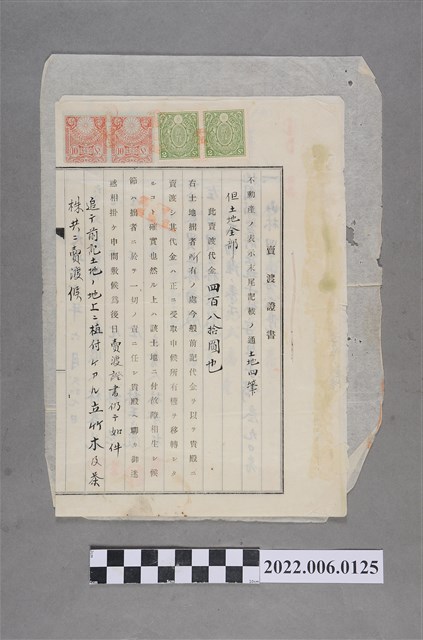 賣渡證書
不動產ノ表示末尾記載ノ通土地四筆
但土地全部
此賣渡代金四百八拾圓也
右土地拙者所有ノ處今般前記代金ヲ以テ貴殿ニ
賣渡シ其代金ハ正ニ受取申候所有權ヲ移轉シタ
ルコト確實也然ル上ハ該土地ニ付故障相生シ候
節ハ拙者ニ於テ一切ノ責ニ任シ貴殿ヘ聊カ御迷
惑相掛ケ申間敷候爲後日賣渡證書仍テ如件
追テ前記土地ノ地上ニ植付ケアル立竹木及茶
株共ニ賣渡候
2022.006.0125